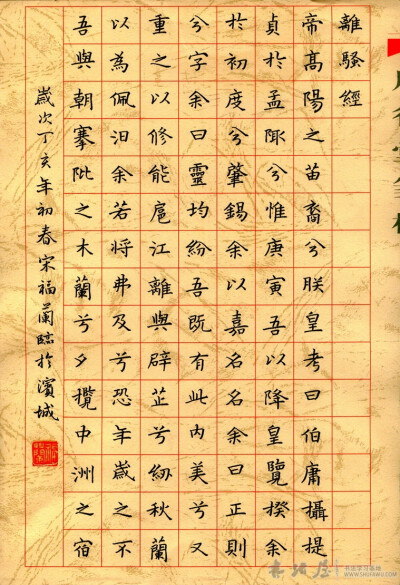 離騷經
帝髙陽之苗裔兮朕皇考曰伯庸攝提
貞於孟陬兮惟庚寅吾以降皇覽揆余
於初度兮肇錫余以嘉名名余曰正則
兮字余曰靈均紛吾既有此內美兮又
重之以修能扈江離與辟芷兮紉秋蘭
以為佩汩余若將弗及兮恐年歲之不
吾與朝搴阰之木蘭兮夕攬中洲之宿
歲次丁亥年初春宋福蘭臨於濱城
书法屋
书法学习基地
WWW.SHUFAWU.COM